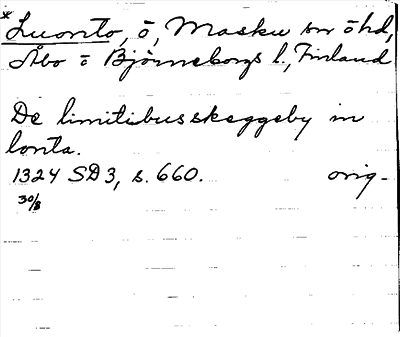 *Luonto, ö, Masku sn o hd,
Åbo o Björneborgs l., Finland
De limitibus skeggeby in
lonta.
1324 SD3, s. 660. orig-
30/8